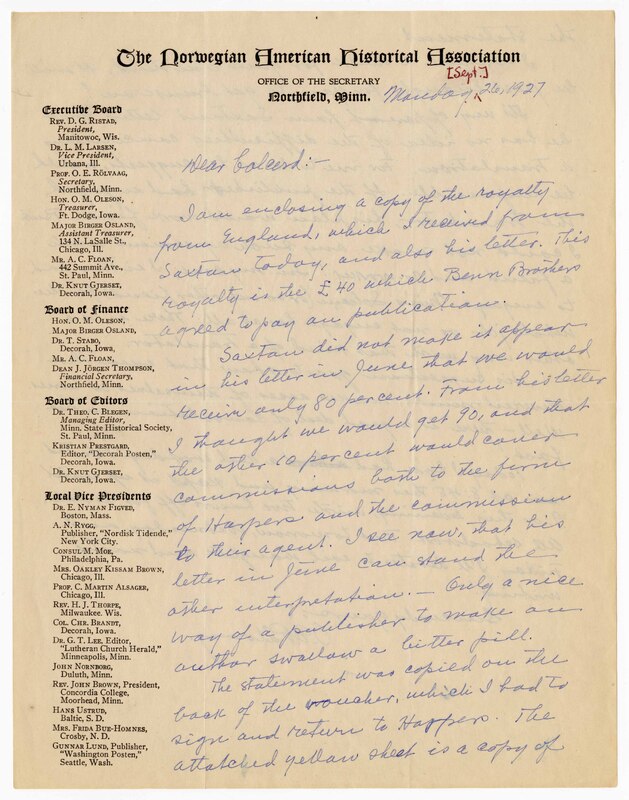 The Norwegian American Historical Association
OFFICE OF THE SECRETARY
Northfield, Minn.
[Sept.]
Monday, 26, 1927
Executive Board
REV. D. G. RISTAD,
President,
Manitowoc, Wis.
DR. L. M. LARSEN,
Vice President,
Urbana, Ill.
PROF. O. E. RÖLVAAG,
Secretary,
Northfield, Minn.
HON. O. M. OLESON,
Treasurer,
Ft. Dodge, Iowa.
MAJOR BIRGER OSLAND,
Assistant Treasurer,
134 N. LaSalle St.,
Chicago, Ill.
MR. A. C. FLOAN,
442 Summit Ave.,
St. Paul, Minn.
DR. KNUT GJERSET,
Decorah, Iowa.
Board of Finance
HON. O. M. OLESON,
MAJOR BIRGER OSLAND,
DR. T. STABO,
Decorah, Iowa.
MR. A. C. FLOAN,
DEAN J. JÖRGEN THOMPSON,
Financial Secretary,
Northfield, Minn.
Board of Editors
DR. THEO. C. BLEGEN,
Managing Editor,
Minn. State Historical Society,
St. Paul, Minn.
KRISTIAN PRESTGARD,
Editor, "Decorah Posten,"
Decorah, Iowa.
DR. KNUT GJERSET,
Decorah, Iowa.
Local Vice Presidents
DR. E. NYMAN FIGVED,
Boston, Mass.
A. N. RYGG,
Publisher, "Nordisk Tidende,"
New York City.
CONSUL M. MOE,
Philadelphia, Pa.
MRS. OAKLEY KISSAM BROWN,
Chicago, Ill.
PROF. C. MARTIN ALSAGER,
Chicago, Ill.
REV. H. J. THORPE,
Milwaukee. Wis.
COL. CHR. BRANDT,
Decorah, Iowa.
DR. G. T. LEE, Editor,
"Lutheran Church Herald,"
Minneapolis, Minn.
JOHN NORNBORG,
Duluth, Minn.
REV. JOHN BROWN, President,
Concordia College,
Moorhead, Minn.
HANS USTRUD,
Baltic, S. D.
MRS. FRIDA BUE-HOMNES,
Crosby, N. D.
GUNNAR LUND, Publisher,
"Washington Posten,"
Seattle, Wash.
Dear Colcord:-
I am enclosing a copy of the royalty
from England, which I received from
Saxton today, and also his letter. This
royalty is the £40 which Benn Brothers
agreed to pay on publication.
Saxton did not make it appear
in his letter in June that we would
receive only 80 percent. From his letter
I thought we would get 90, and that
the other 10 percent would cover
commissions both to the firm
of Harpers and the commission
to their agent. I see now, that his
letter in June can stand the
other interpretation. — Only a nice
way of a publisher to make an
author swallow a bitter pill.
The statement was copied on the
back of the voucher, which I had to
sign and return to Harpers. The
attatched yellow sheet is a copy of